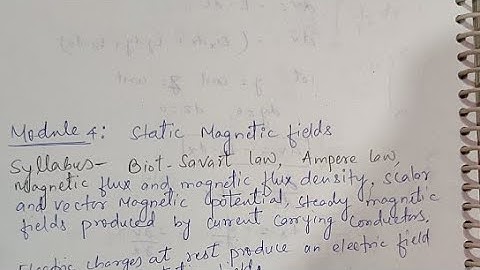 Module 4: Static Magnetic fields
Syllabus- Biot-Savart law, Ampere law,
Magnetic flux and magnetic flux density, scalar
and vector Magnetic potential, steady magnetic
fields produced by current carrying conductors,
Electric charges at rest produce an electric field
fields